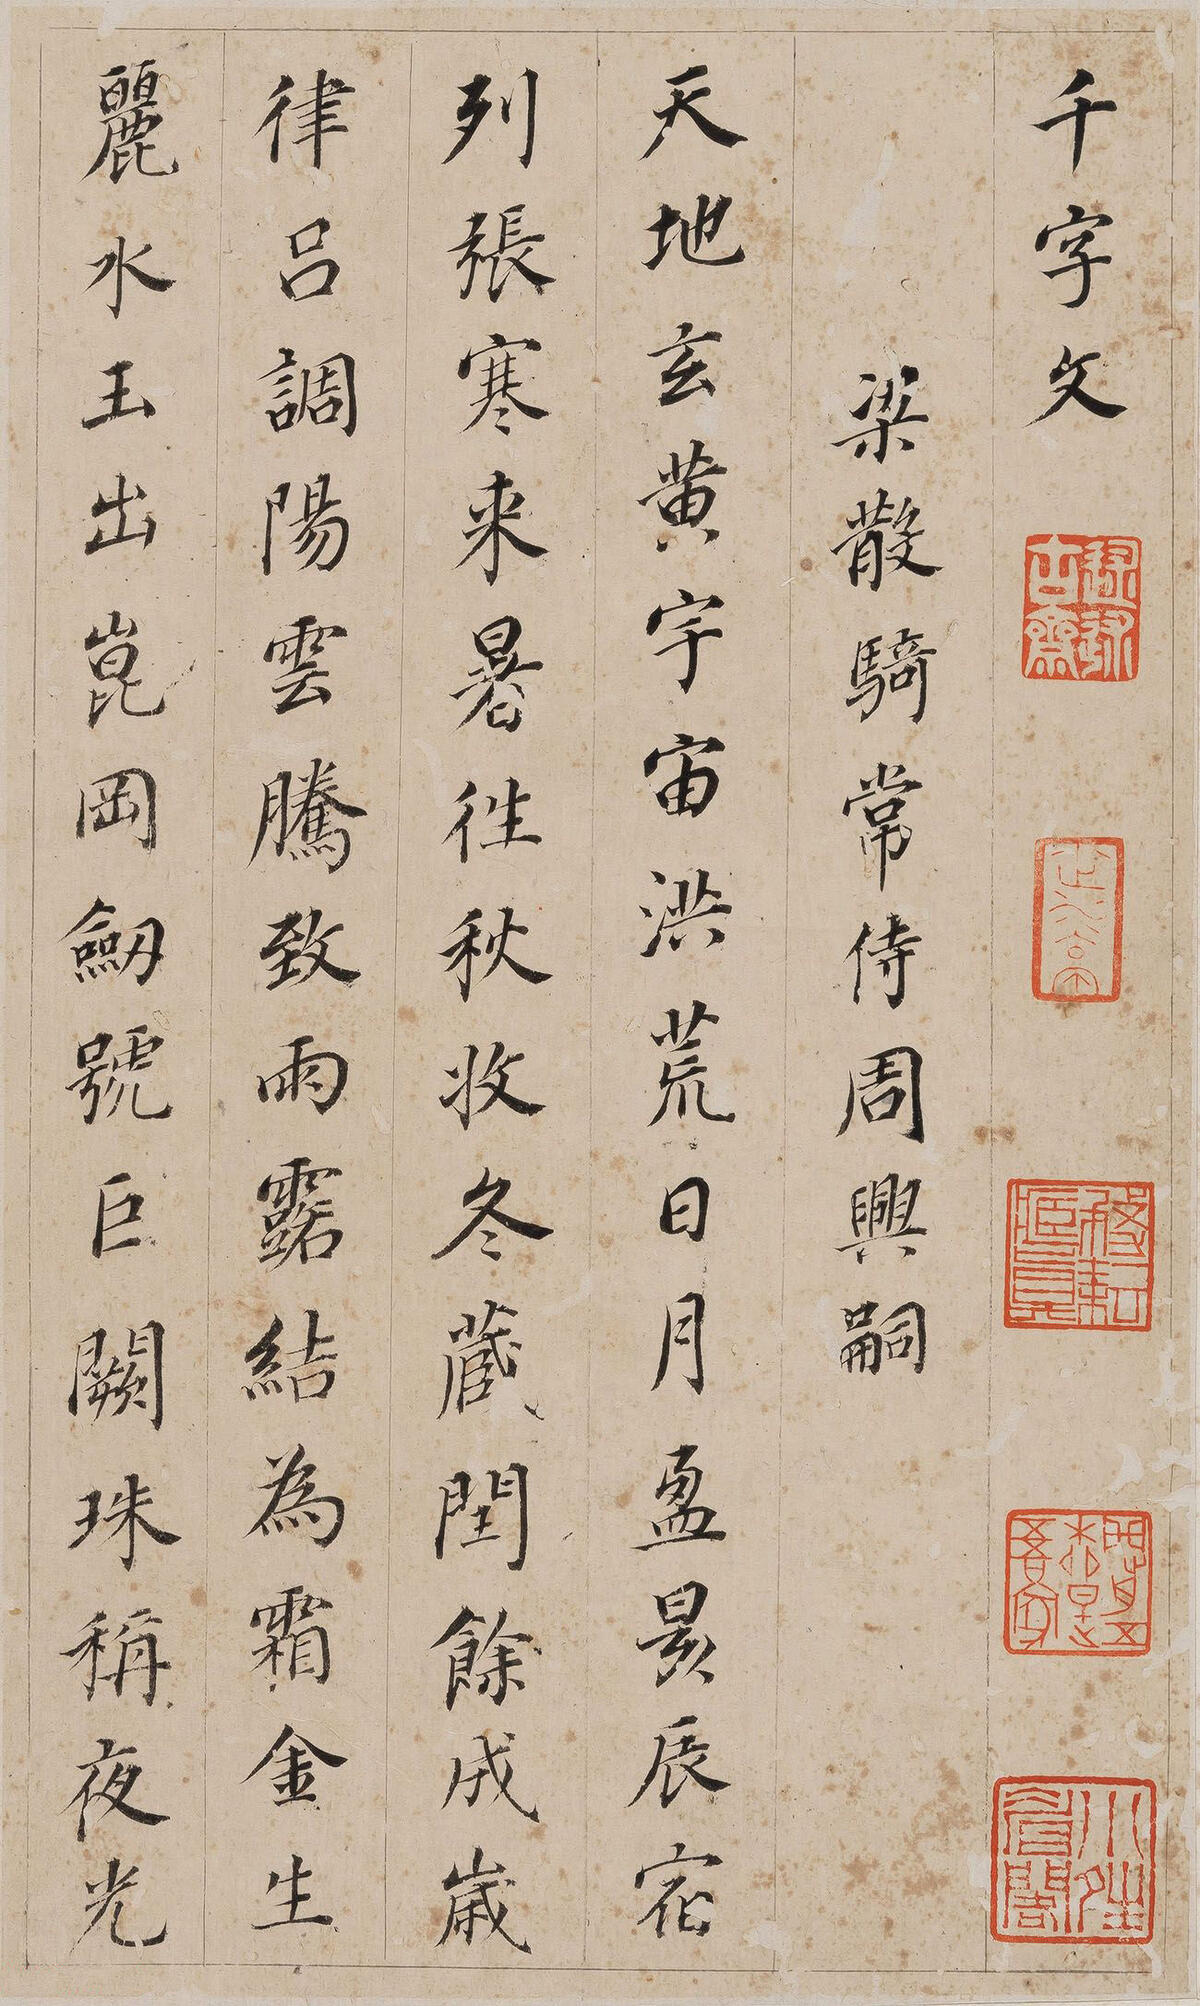 千字文
梁散騎常侍周興嗣
天地玄黃宇宙洪荒日月盈昃辰宿
列張寒来暑往秋收冬藏閏餘成歲
律吕調陽雲騰致雨露結為霜金生
麗水玉出崑岡劒號巨闕珠稱夜光